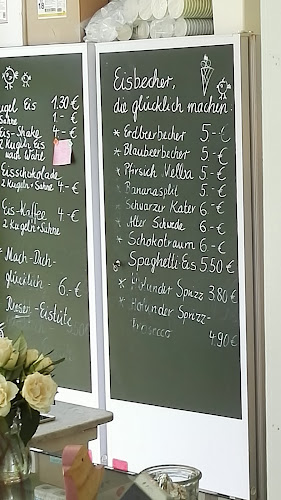 ugel Eis 1.30 €
Sahne 1.- €
Eis-Shake 4.- €
2 Kugeln Eis
nach Wahl
Eisschokolade
2 Kugeln + Sahne 4.- €
Eis-Kaffee 4.- €
2 Kugeln + Sahne
Mach-Dich-
glücklich - 6.- €
Riesen-Eistüte
Eisbecher,
die glücklich machen:
* Erdbeerbecher 5.- €
* Blaubeerbecher 5.- €
* Pfirsich Melba 5.- €
* Bananasplit 5.- €
* Schwarzer Kater 6.- €
* Alter Schwede 6.- €
* Schokotraum 6.- €
* Spaghetti-Eis 5.50 €
* Holunder Sprizz 3.80 €
* Holunder Sprizz-
Prosecco 4.90 €